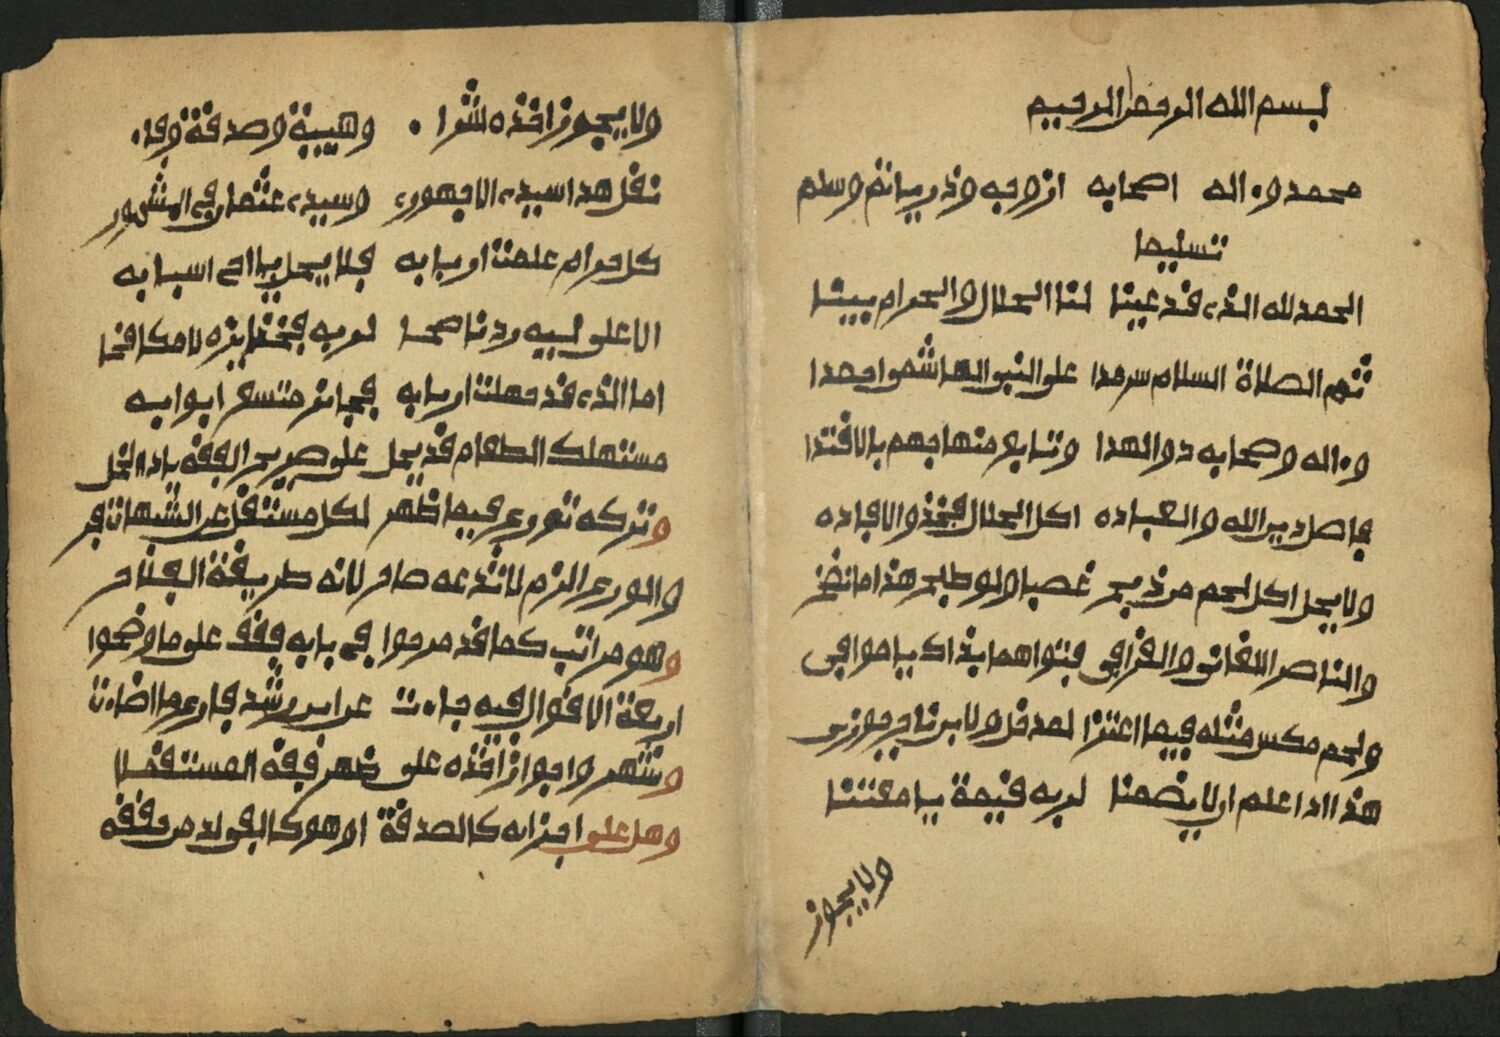 بسم الله الرحمن الرحيم
محمد وءاله اصحابه ازوجه وذرياته وسلم
تسليما
الحمد لله الذي قد عينا لنا الحلال والحرام بينا
ثم الصلاة السلام سرمدا على النبي الهاشمي احمدا
وءاله وصحابه ذو الهدا وتابع منهاجهم بالاقتدا
فاصل دين الله والعباده اكل الحلال فخذ والافاده
ولا يحل اكل لحم من ذبح غصبا ولو طبخ هذا ما نضح
والناصر اللقاني والقرافي فتواهما بذاك يا موافي
ولحم مكس مثله فيما اعتزا لمدخل ولابن ناجي جوزى
هذا اذا علم ان لا يضمنا لربه قيمة يا معتنا
ولا يجوز
ولا يجوز اخذه شرا وهيبة وصدقة وفا
نقل هذا سيدي الاجهوري وسيدي عثمان في المشهور
كل حرام علمت اربابه فلا يحل يا اخي اسبابه
الا على نييه رد ناصحا لربه فخذ
اما الذي قد جهلت اربابه فجايز متسع ابوابه
مستهلك الطعام قد يحل على صريح الفقه يا ذا الخل
وتركه تورع فيما ظهر لكل مستقل عن الشبهات فر
والورع الزم لا تدعه صاح لانه طريقة الفلاح
وهو مراتب كما قد صرحوا في بابه فقف على ما وضحوا
اربعة الاقوال فيه جاءت عن ابن رشد فارع ما اضاءت
وشهروا جواز اخذه على ضهر فقه المستقلا
وهل على اجزائه كالصدقة او هو كالفي لدى من حققه